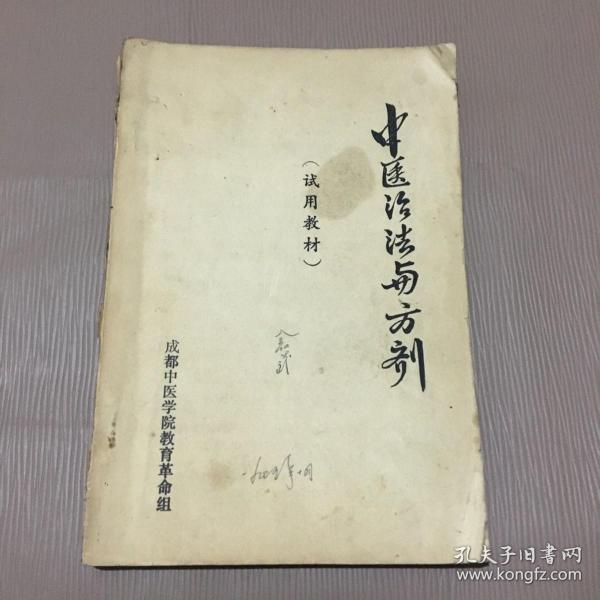 中医治法与方剂
(试用教材)
成都中医学院教育革命组
孔夫子旧书网
www.kongfz.com